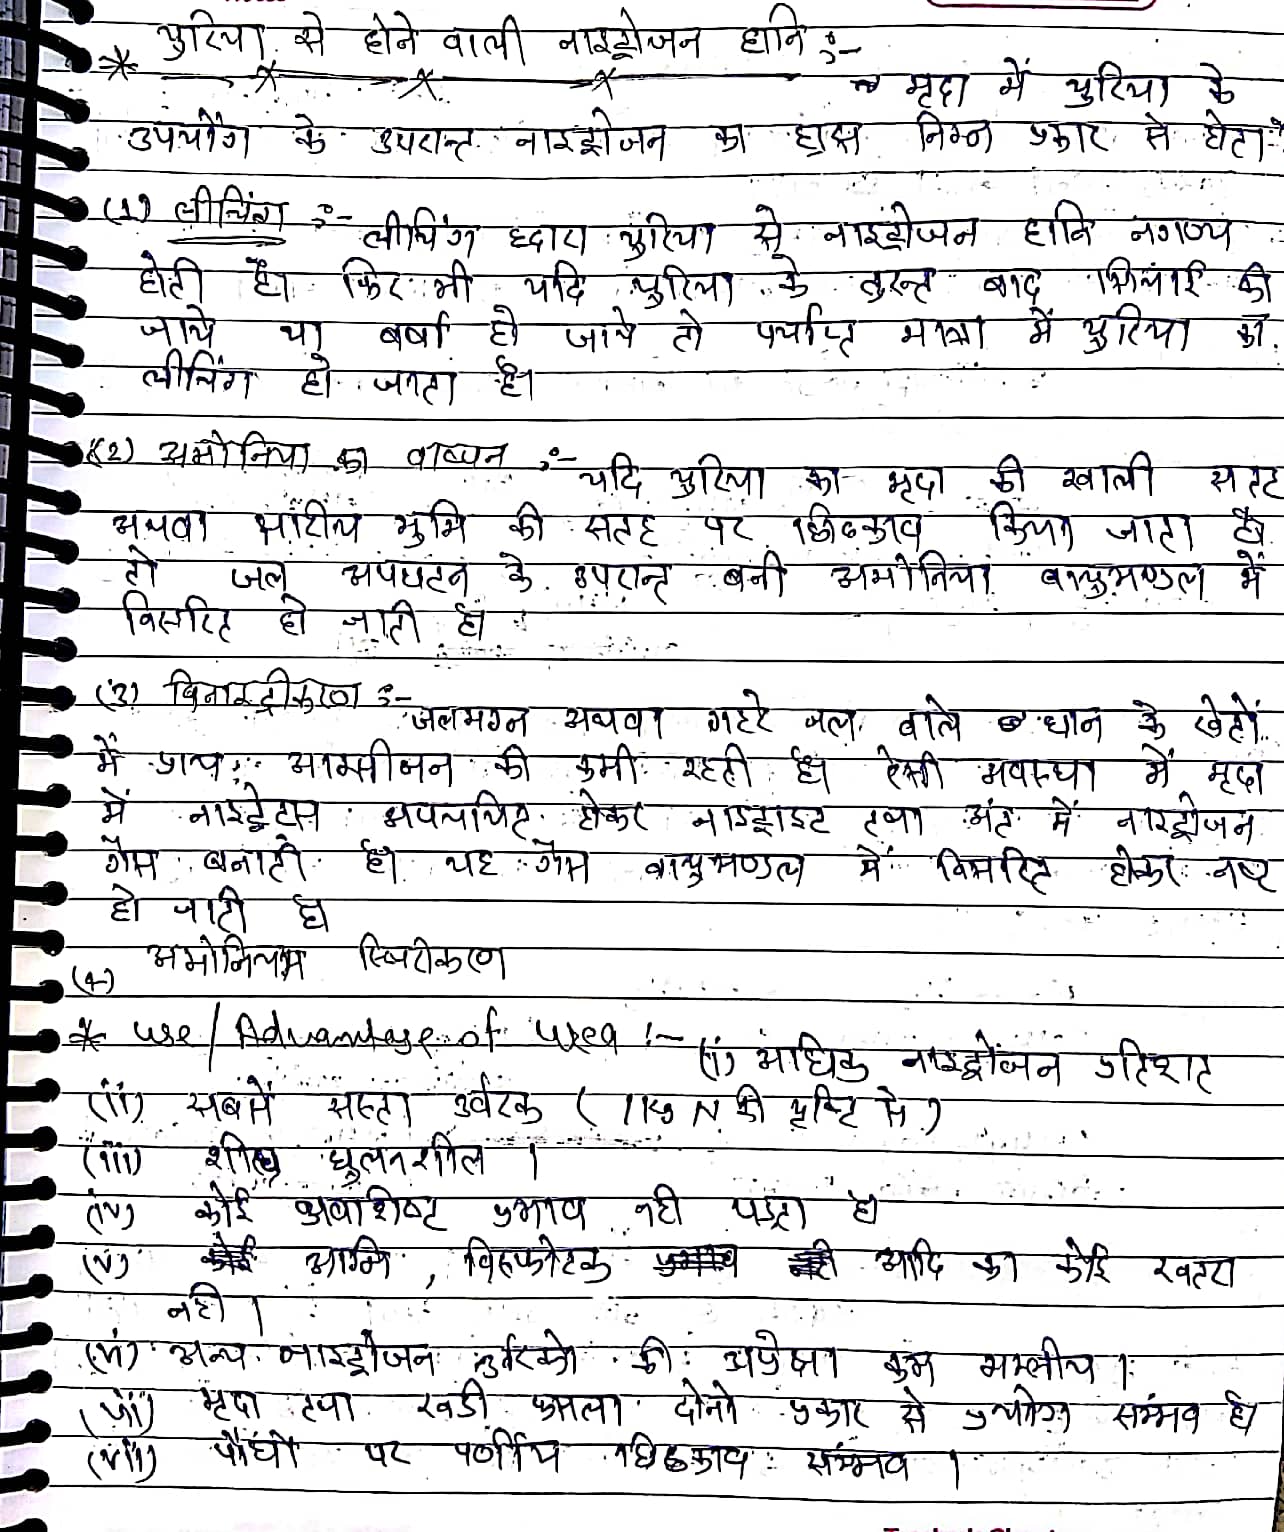 * यूरिया से होने वाली नाइट्रोजन हानि :-
→ मृदा में यूरिया के
उपयोग के उपरान्त नाइट्रोजन का ह्रास निम्न प्रकार से होता है
(1) लीचिंग :- लीचिंग द्वारा यूरिया से नाइट्रोजन हानि नगण्य
होती है। फिर भी यदि यूरिया के तुरन्त बाद सिंचाई की
जाये या वर्षा हो जाये तो पर्याप्त मात्रा में यूरिया का
लीचिंग हो जाता है।
(2) अमोनिया का वाष्पन :- यदि यूरिया का मृदा की खाली सतह
अथवा क्षारीय भूमि की सतह पर छिडकाव किया जाता है
तो जल अपघटन के उपरान्त बनी अमोनिया वायुमण्डल में
विसरित हो जाती है।
(3) विनाइट्रीकरण :- जलमग्न अथवा गहरे जल वाले धान के खेतों
में प्रायः आक्सीजन की कमी रहती है। ऐसी अवस्था में मृदा
में नाइट्रेटस अपचयित होकर नाइट्राइट तथा अंत में नाइट्रोजन
गैस बनाती है। यह गैस वायुमण्डल में विसरित होकर नष्ट
हो जाती है।
(4) अमोनियम स्थिरीकरण
* Use / Advantage of Urea :- (i) अधिक नाइट्रोजन प्रतिशत
(ii) सबसे सस्ता उर्वरक ( 1 Kg N की दृष्टि से )
(iii) शीघ्र घुलनशील ।
(iv) कोई अवशिष्ट प्रभाव नही पडता है
(v) कोई अग्नि , विस्फोटक प्रभाव नही आदि का कोई खतरा
नही ।
(vi) अन्य नाइट्रोजन उर्वरको की अपेक्षा कम अम्लीय ।
(vii) मृदा तथा खडी फसल दोनो प्रकार से प्रयोग सम्भव है
(viii) पौधों पर पर्णीय छिडकाव सम्भव ।